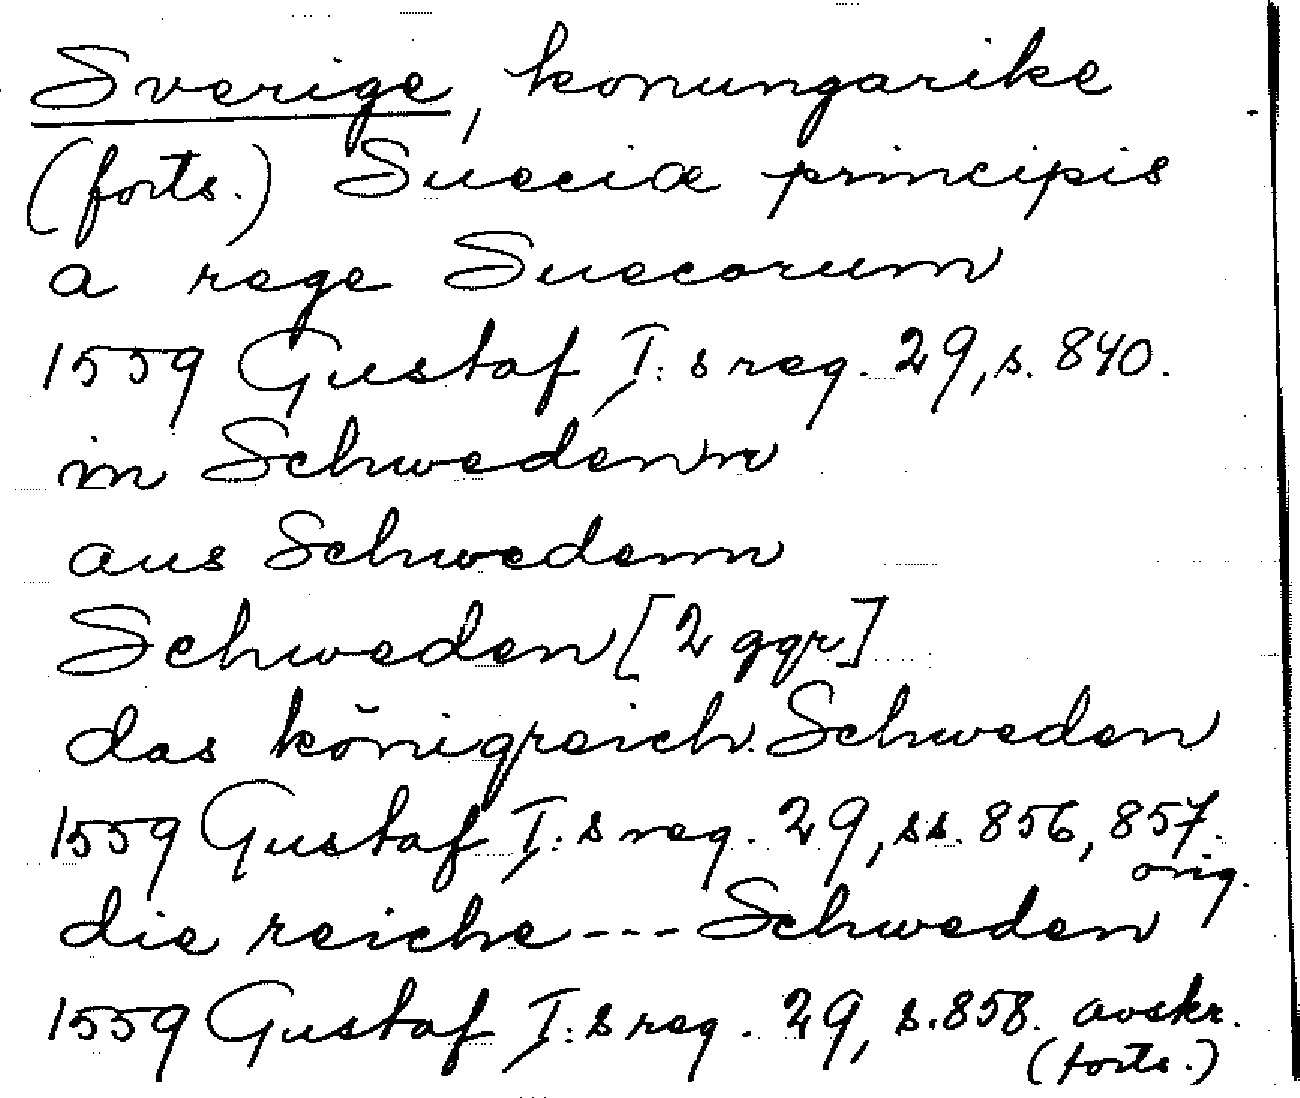 Sverige, konungarike
(forts.) Sueciæ principis
a rege Suecorum
1559 Gustaf I:s reg. 29, s. 840.
in Schwedenn
aus Schwedenn
Schweden [2 ggr]
das königreich Schweden
1559 Gustaf I:s reg. 29, ss. 856, 857.
orig.
die reiche --- Schweden
1559 Gustaf I:s reg. 29, s. 858. avskr.
(forts.)